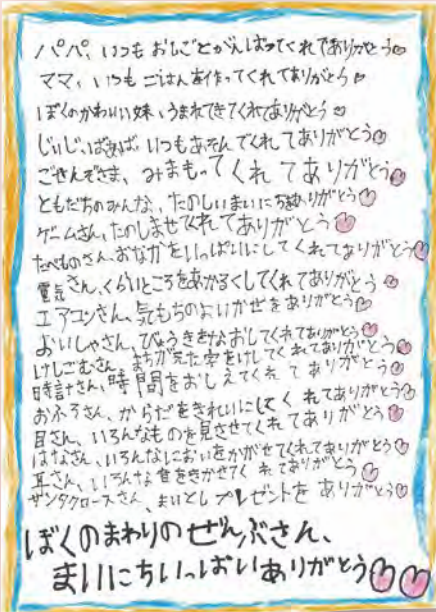 パパ、いつもおしごとがんばってくれてありがとう♡
ママ、いつもごはんを作ってくれてありがとう♡
ぼくのかわいい妹、うまれてきてくれてありがとう♡
じぃじ、ばぁば、いつもあそんでくれてありがとう♡
ごせんぞさま、みまもってくれてありがとう♡
ともだちのみんな、たのしいまいにちをありがとう♡
ゲームさん、たのしませてくれてありがとう♡
たべものさん、おなかをいっぱいにしてくれてありがとう♡
電気さん、くらいところをあかるくしてくれてありがとう♡
エアコンさん、気もちのよいかぜをありがとう♡
おいしゃさん、びょうきをなおしてくれてありがとう♡
けしごむさん、まちがえた字をけしてくれてありがとう♡
時計さん、時間をおしえてくれてありがとう♡
おふろさん、からだをきれいにしてくれてありがとう♡
目さん、いろんなものを見させてくれてありがとう♡
はなさん、いろんなにおいをかがせてくれてありがとう♡
耳さん、いろんな音をきかせてくれてありがとう♡
サンタクロースさん、まいとしプレゼントをありがとう♡
ぼくのまわりのぜんぶさん、
まいにちいっぱいありがとう♡♡